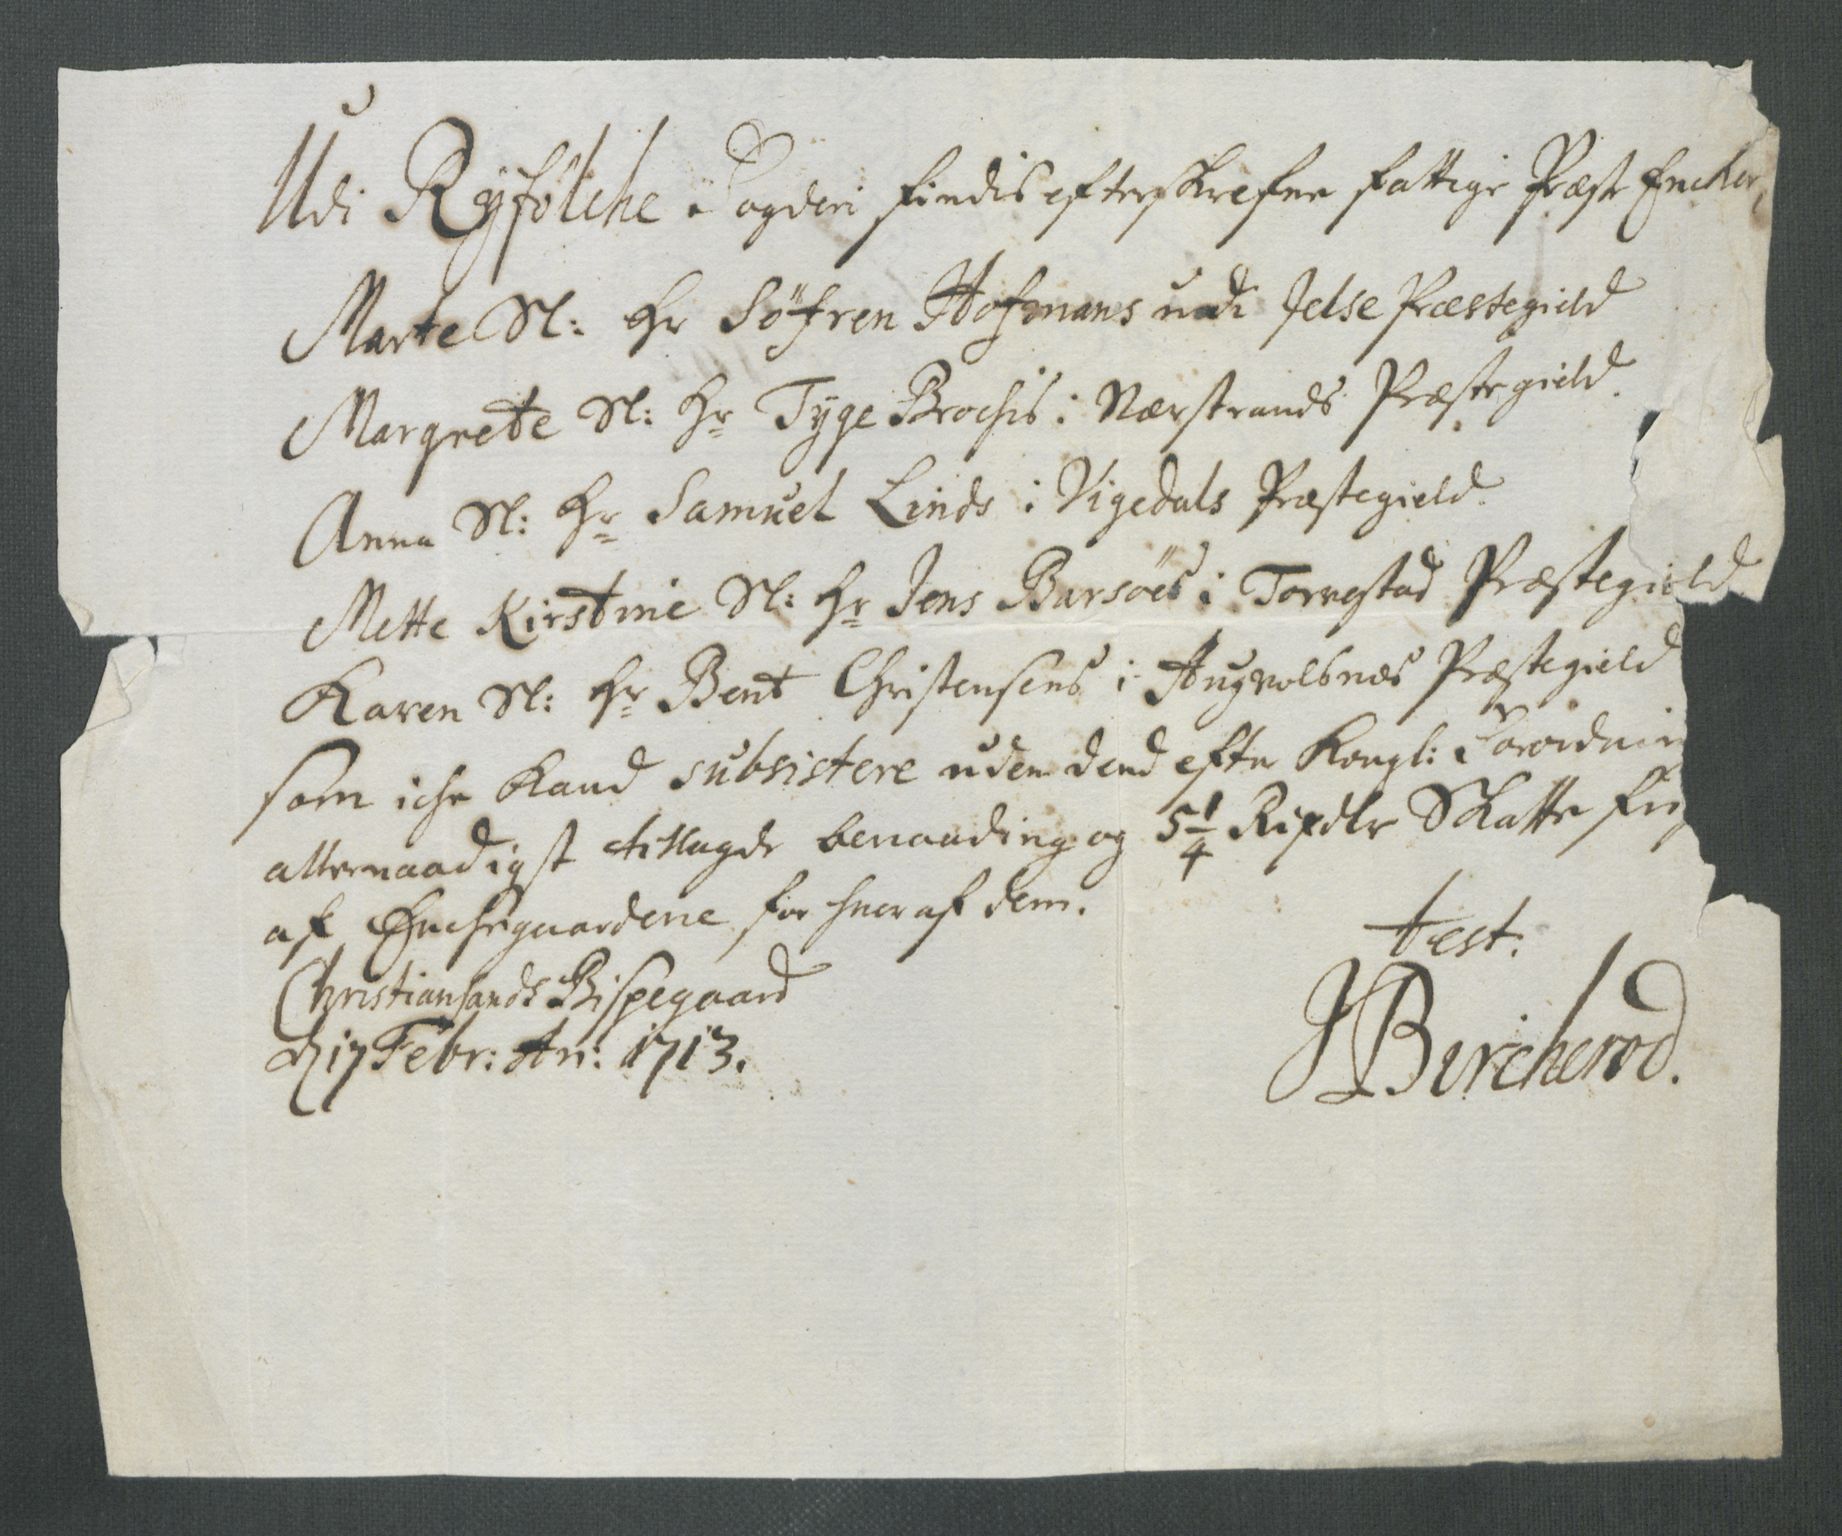 Udi Ryfölche Fogderi findis efterskrefne fattige Præste Encker,
Marte Sl: Hr Söfren Hofmans udi Jelse Præstegield
Margrete Sl: Hr Tyge Brochs i Nærstrands Præstegield.
Anna Sl: Hr Samuel Linds i Vigedals Præstegield.
Mette Kirstine Sl: Hr Jens Barsöes i Torvestad Præstegield
Karen Sl: Hr Bent Christensens i Augvolsnes Præstegield
som iche kand subsistere uden dend efter Kongl: Forordnin
allernaadigst tillagde benaading og 5 1/4 Rixdlr Skatte fri
af Enchegaardene for hver af dem.
Christiansands Bispegaard
d 17 Febr: An: 1713.
test:
JBircherod.